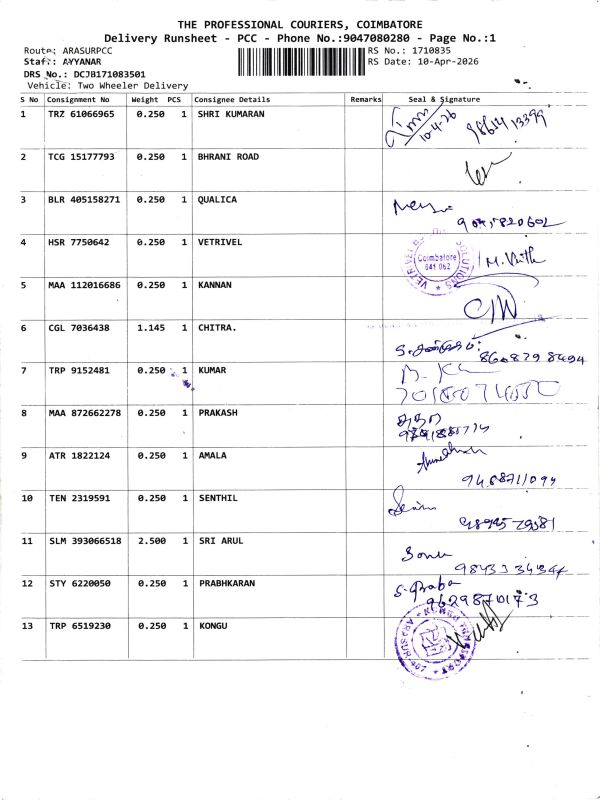 THE PROFESSIONAL COURIERS, COIMBATORE
Delivery Runsheet - PCC - Phone No.:9047080280 - Page No.:1
Route: ARASURPCC RS No.: 1710835
Staff: AYYANAR RS Date: 10-Apr-2026
DRS No.: DCJB171083501
Vehicle: Two Wheeler Delivery
S No Consignment No Weight PCS Consignee Details Remarks Seal & Signature
1 TRZ 61066965 0.250 1 SHRI KUMARAN 10-4-26
2 TCG 15177793 0.250 1 BHRANI ROAD
3 BLR 405158271 0.250 1 QUALICA
4 HSR 7750642 0.250 1 VETRIVEL Coimbatore 641 062 SOLUTIONS VETRIVEL
5 MAA 112016686 0.250 1 KANNAN
6 CGL 7036438 1.145 1 CHITRA. 8608798494
7 TRP 9152481 0.250 1 KUMAR
8 MAA 872662278 0.250 1 PRAKASH
9 ATR 1822124 0.250 1 AMALA
10 TEN 2319591 0.250 1 SENTHIL
11 SLM 393066518 2.500 1 SRI ARUL
12 STY 6220050 0.250 1 PRABHKARAN S. Praba 9629870173
13 TRP 6519230 0.250 1 KONGU KONGU TRANSPORT ARASUR-407